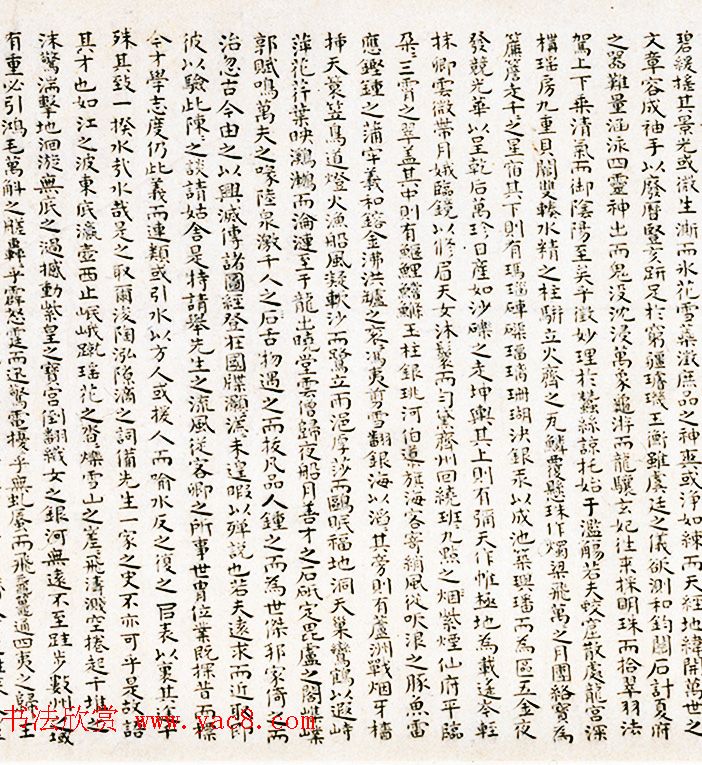 碧緩搖其景光或徵生澌而水花雪藥澂庶品之神與或淨如練而天經地緯開萬世之
文章容成袖手以廢曆竪亥趼足於窮疆璿璣玉衡雖虞廷之儀欲測和鈞關石計夏府
之器難量涵泳四靈神出而鬼没沈浸萬象龜游而龍驤玄妃往來採明珠而拾翠羽法
駕上下乘清氣而御陰陽至矣乎徵妙理於蠶絲諒托始于濫觴若夫蛟窟散處龍宮深
構瑤房九重貝闕雙轇水精之柱駢立火齊之瓦鱗覆懸珠作燭梁飛萬之月團絡寶為
簾簷走千之星宿其下則有瑪瑙硨磲璠璵珊瑚決銀汞以成池築璵璠而為區五金夜
發競光華以呈乾后萬珍日產如沙礫之走坤輿其上則有彌天作帷極地為載逶岑輕
抹卿雲微葉月娥臨鏡以修眉天女沐髮而勻黛齊州回繞班九點之烟紫煙仙府平臨
朵三霄之翠蓋其中則有鰋鯉鱨鯊玉柱銀珧河伯導旌海客寄綃風從吹浪之豚魚雷
應鏗鍾之蒲牢羲和鎔金沸洪爐之裘馮夷剪雪翻銀海以滔其旁則有蘆洲戰烟牙檣
插天蓑笠鳥道燈火漁船風凝軟沙而鷺立雨浥厚莎而鷗眠福地洞天巢鸞鶴以遐峙
萍花荇葉映鸂鶒而淪漣至于龍出曉堂雲僧歸夜船月善才之石斫定毘盧之閣嶫
郭賦鳴萬夫之喙陸泉激千人之后古物遇之而拔凡品人鍾之而為世傑邦家倚之而
治忽古今由之以興滅傳諸圖經登在國牒灝漾未遑暇以殫說也若夫遠求而近取即
彼以驗此陳之談請姑舍是特請舉先生之流風從客卿之所事世胄位業既探昔而標
今才學志度仍此義而連類或引水以方人或援人而喻水反之復之自表以裏其
殊其致一揆水哉水哉是之取爾浚陶泓隱滴之詞備先生一家之史不亦可乎是故語
其才也如江之波東底瀛壺西止岷峨蹴瑤花之沓爍雪山之差飛濤濺空捲起千堆之
沫驚湍擊地洄漩無底之過撼動紫皇之寶宮倒翻織女之銀河無遠不至跬步數州之域
有重必引鴻毛萬斛之艘轟乎霹怒霆而迅驚電擾乎無虬蜃而飛黿鼉通四夷之歸
书法欣赏 www.yac8.com